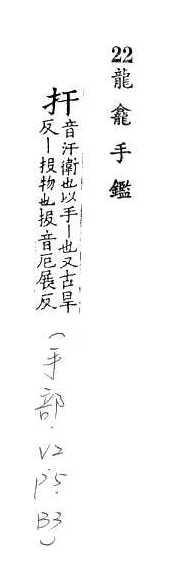 22 龍龕手鑑
扞
音汗衛也以手丨也又古旱
反丨报物也报音厄展反
(手部. V2 P5. B3)